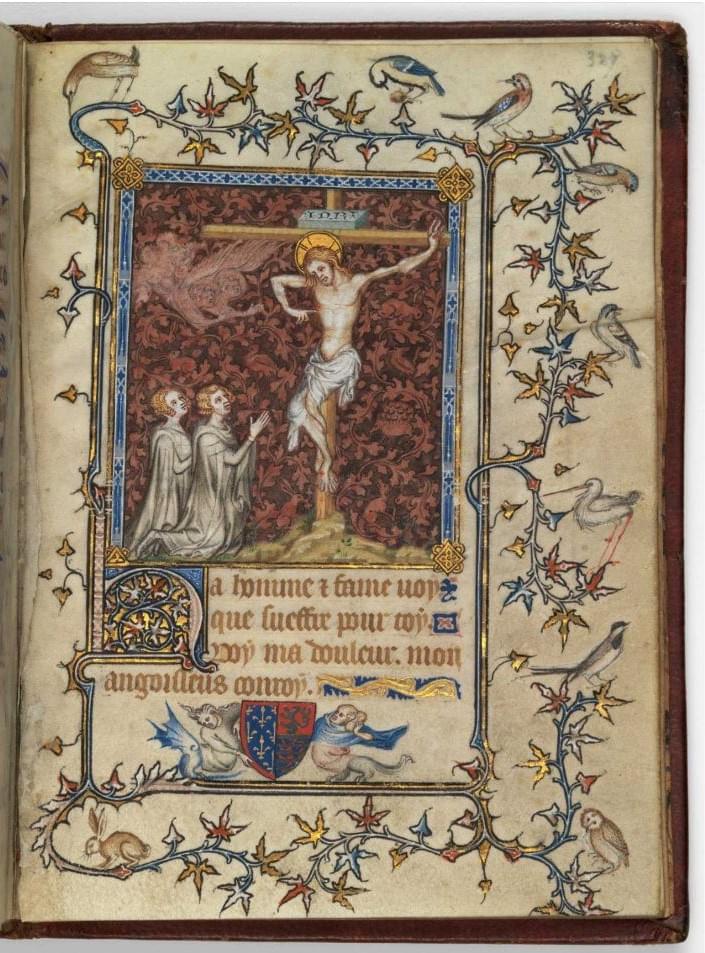 INRI
Ha homme ⁊ fame uoy
que sueffre pour toy.
voy ma douleur. mon
angoisseus conroy.